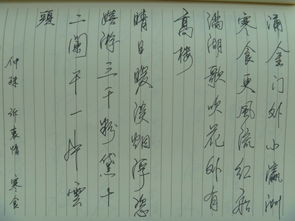 涌金门外小瀛洲
寒食更风流红船
满湖歌吹花外有
高楼
晴日暖淡烟浮恣
嬉游三千粉黛十
二阑干一片云
头
仲殊 诉衷情 寒食